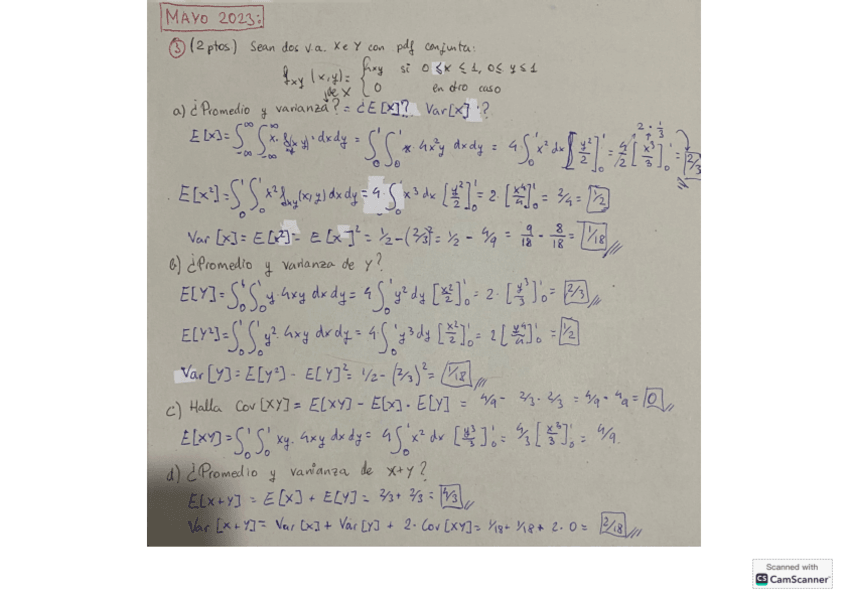 MAYO 2023:
③ (2 ptos) Sean dos v.a. X e Y con pdf conjunta:
f_xy (x,y) = { 4xy si 0 ≤ x ≤ 1, 0 ≤ y ≤ 1
0 en otro caso
de X
a) ¿Promedio y varianza? = ¿E[X]? Var[X]?
2·1/3
E[X] = ∫_{-∞}^{∞} ∫_{-∞}^{∞} x·f(x,y)·dxdy = ∫_0^1 ∫_0^1 x·4x²y dxdy = 4∫_0^1 x² dx [y²/2]_0^1 = 4/2 [x³/3]_0^1 = 2/3
E[X²] = ∫_0^1 ∫_0^1 x² f_xy(x,y) dxdy = 4·∫_0^1 x³ dx [y²/2]_0^1 = 2·[x⁴/4]_0^1 = 2/4 = 1/2
Var [X] = E[X²] - E[X]² = 1/2 - (2/3)² = 1/2 - 4/9 = 9/18 - 8/18 = 1/18
b) ¿Promedio y varianza de Y?
E[Y] = ∫_0^1 ∫_0^1 y·4xy dxdy = 4∫_0^1 y² dy [x²/2]_0^1 = 2·[y³/3]_0^1 = 2/3
E[Y²] = ∫_0^1 ∫_0^1 y²·4xy dxdy = 4·∫_0^1 y³ dy [x²/2]_0^1 = 2[y⁴/4]_0^1 = 1/2
Var [Y] = E[Y²] - E[Y]² = 1/2 - (2/3)² = 1/18
c) Halla Cov[XY] = E[XY] - E[X]·E[Y] = 4/9 - 2/3·2/3 = 4/9 - 4/9 = 0
E[XY] = ∫_0^1 ∫_0^1 xy·4xy dxdy = 4∫_0^1 x² dx [y³/3]_0^1 = 4/3 [x³/3]_0^1 = 4/9.
d) ¿Promedio y varianza de X+Y?
E[X+Y] = E[X] + E[Y] = 2/3 + 2/3 = 4/3
Var [X+Y] = Var [X] + Var [Y] + 2·Cov [XY] = 1/18 + 1/18 + 2·0 = 2/18
Scanned with
CS CamScanner